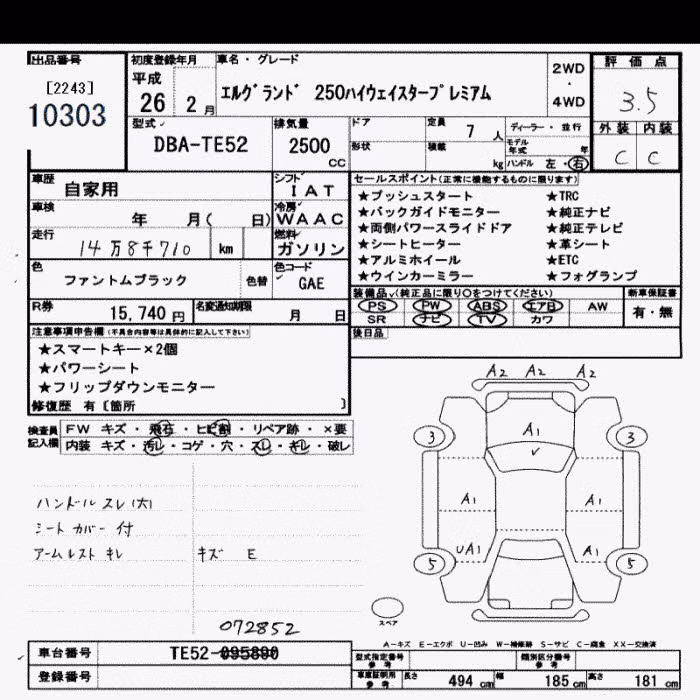 出品番号 初度登録年月 車名・グレード 2WD ・ 4WD 評価点
[2243] 平成 エルグランド 250ハイウェイスタープレミアム 3.5
10303 26 年 2 月
型式 排気量 ドア 定員 7 人 ディーラー・並行 外装 内装
DBA-TE52 2500 CC 形状 積載 kg モデル年式 年 C C
ハンドル 左・右
車歴 自家用 シフト IAT セールスポイント(正常に機能するものに限ります)
車検 年 月( 日) 冷房 WAAC
走行 14万8千710 km 燃料 ガソリン
色 ファントムブラック 色替 色コード GAE
★プッシュスタート ★TRC
★バックガイドモニター ★純正ナビ
★両側パワースライドドア ★純正テレビ
★シートヒーター ★革シート
★アルミホイール ★ETC
★ウインカーミラー ★フォグランプ
R券 15,740 円 名変通知期限 月 日
装備品(純正品に限り○をつけてください) 新車保証書
PS PW ABS エアB AW 有・無
SR ナビ TV カワ
後日品
注意事項申告欄(不具合内容等は具体的に記入して下さい)
★スマートキー×2個
★パワーシート
★フリップダウンモニター
修復歴 有 [箇所 ]
検査員記入欄 FW キズ・飛石・ヒビ割・リペア跡・×要
内装 キズ・汚レ・コゲ・穴・スレ・キレ・破レ
A2 A2 A2
A1
3 3
A1 A1
UA1 A1
5 5
スペア
ハンドル スレ(大)
シートカバー付
アームレスト キレ キズ E
072852
A-キズ E-エクボ U-凹み W-補修跡 S-サビ C-腐食 XX-交換済
車台番号 TE52-095890
登録番号
型式指定番号 参考 類別区分番号 参考
車庫証明用 参考 長さ 494 cm 幅 185 cm 高さ 181 cm